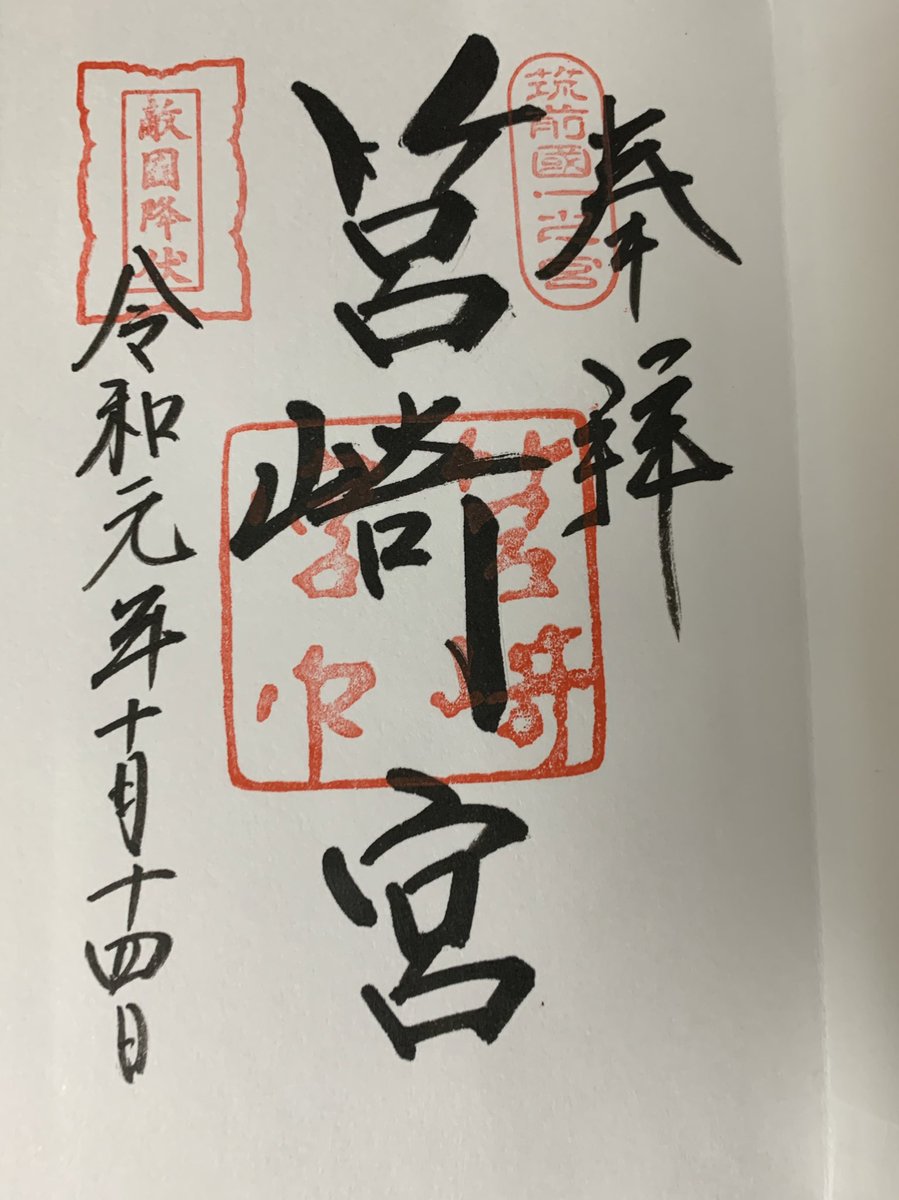 奉拝
筑前國一之宮
筥崎宮
筥崎宮印
敵國降伏
令和元年十月十四日